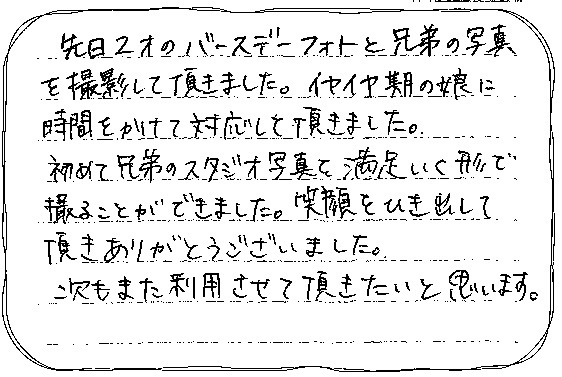 先日2才のバースデーフォトと兄弟の写真
を撮影して頂きました。イヤイヤ期の娘に
時間をかけて対応して頂きました。
初めて兄弟のスタジオ写真を満足いく形で
撮ることができました。笑顔をひき出して
頂きありがとうございました。
次もまた利用させて頂きたいと思います。